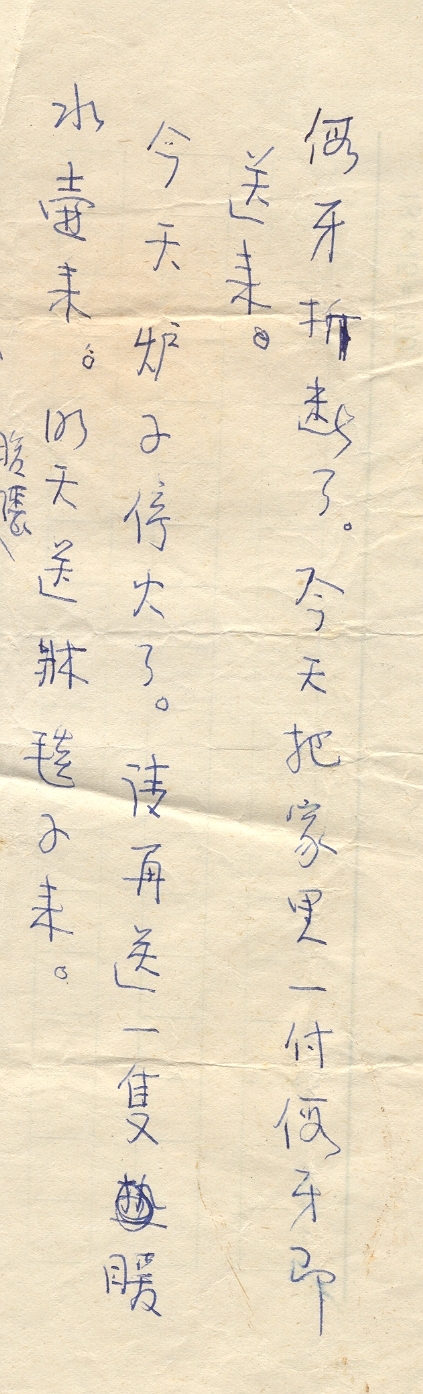 假牙折断了。今天把家里一付假牙即
送来。
今天炉子停火了。请再送一隻暖
水壶来。明天送牀毯子来。